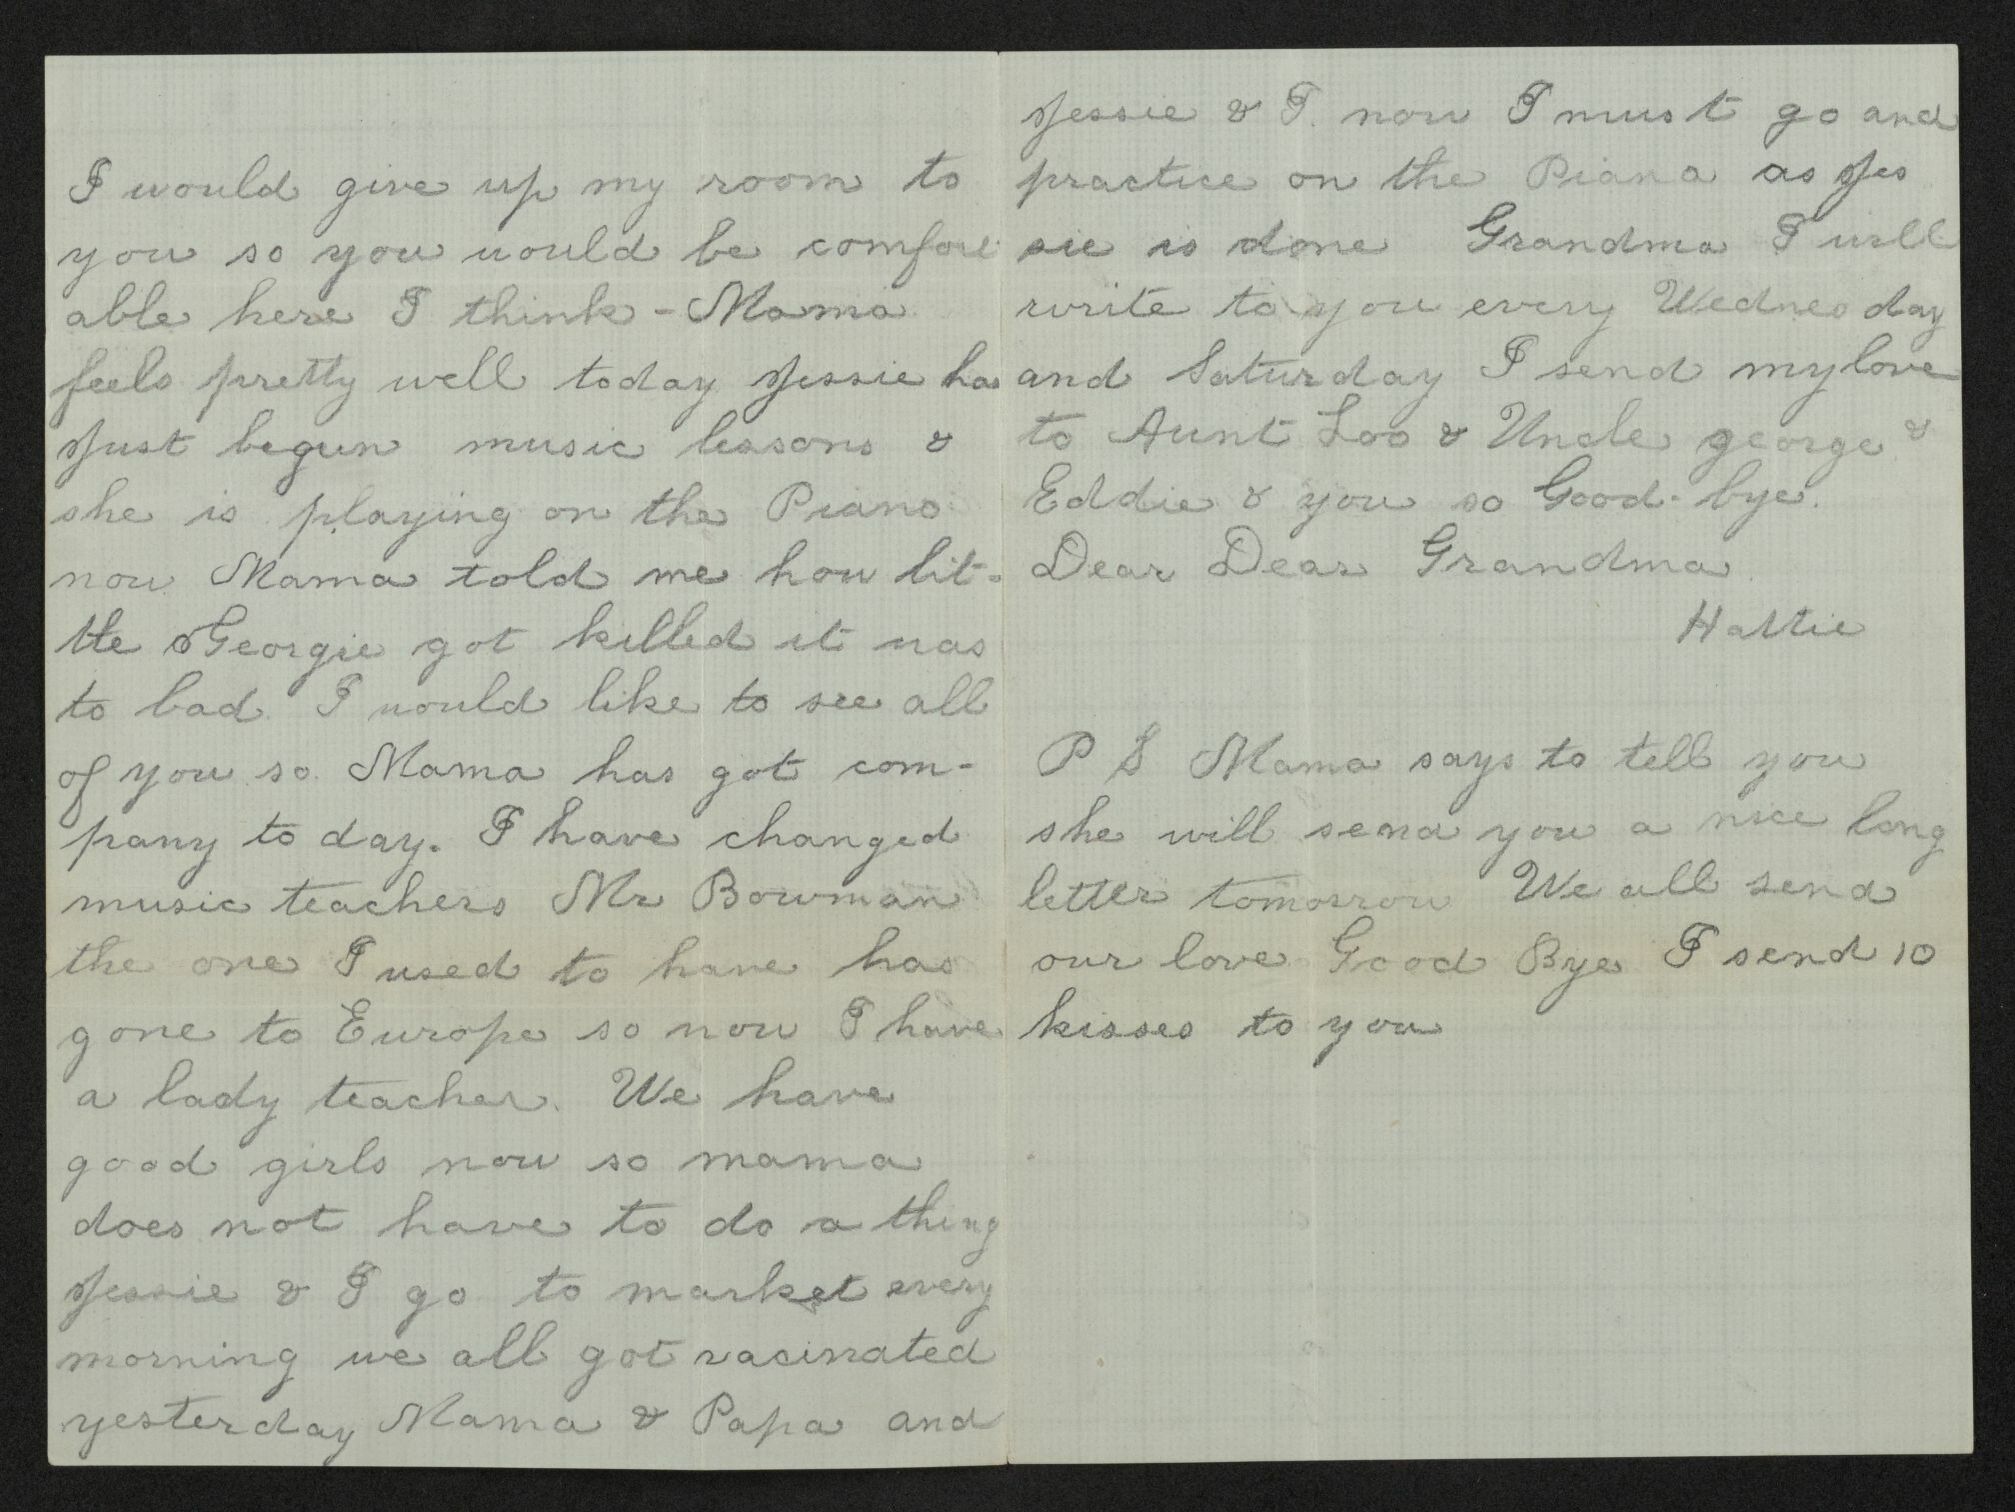 I would give up my room to
you so you would be comfort
able here I think - Mama
feels pretty well today Jessie has
Just begun music lessons &
she is playing on the Piano
now Mama told me how lit-
tle Georgie got killed it was
to bad I would like to see all
of you so. Mama has got com-
pany to day. I have changed
music teachers Mr Bowman
the one I used to have has
gone to Europe so now I have
a lady teacher. We have
good girls now so mama
does not have to do a thing
Jessie & I go to market every
morning we all got vacinated
yesterday Mama & Papa and
Jessie & I. now I must go and
practice on the Piana as Jes
sie is done Grandma I will
write to you every Wednesday
and Saturday I send my love
to Aunt Loo & Uncle george &
Eddie & you so Good-bye.
Dear Dear Grandma
Hattie
P S Mama says to tell you
she will send you a nice long
letter tomorrow We all send
our love Good Bye I send 10
kisses to you